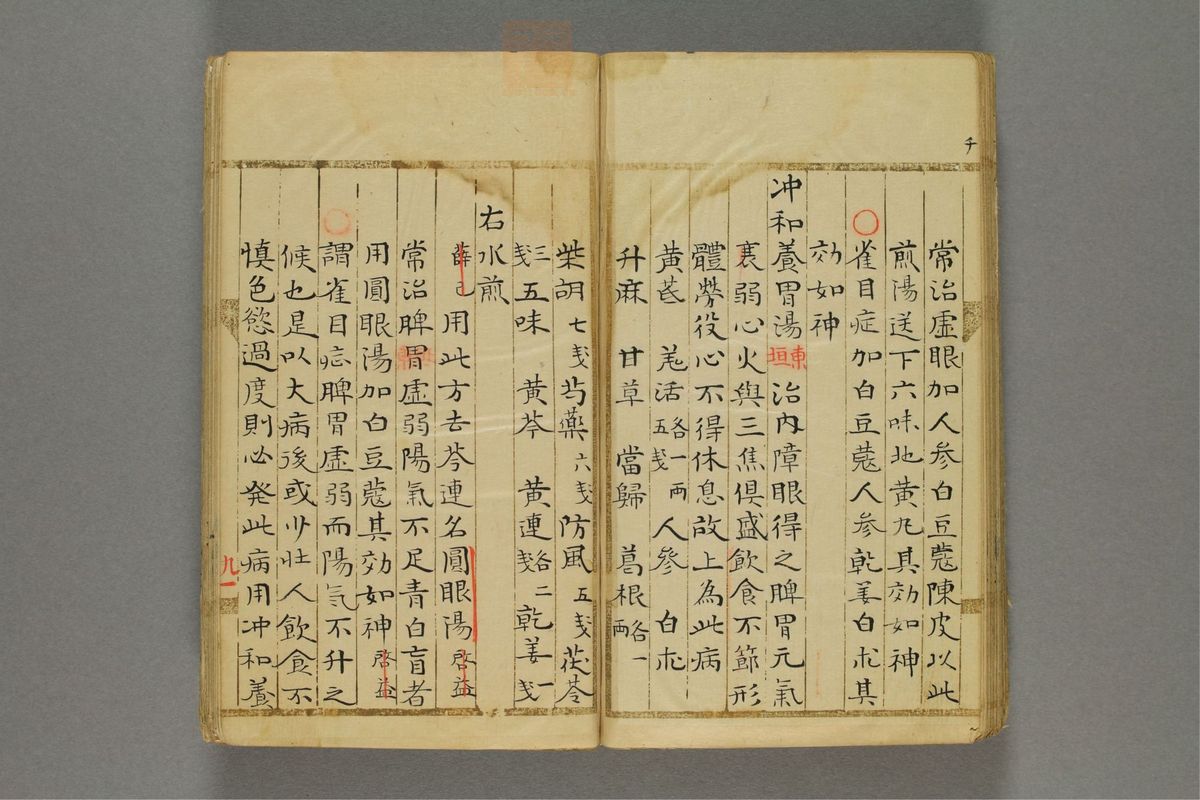 常治虛眼加人参白豆蔻陳皮以此
煎陽送下六味地黄丸其効如神
雀目症加白豆蔻人参乾姜白朮其
効如神
冲和養胃湯東垣治内障眼得之脾胃元氣
衰弱心火與三焦俱盛飲食不節形
體勞役心不得休息故上為此病
黄芪 羗活各一两五戋人參 白朮
升麻 甘草 當歸 葛根各一两
柴胡七戋芍藥六戋防風五戋茯苓
三戋五味 黄芩 黄連各二戋乾姜一戋
右水煎
薛己用此方去芩連名圓眼陽啓益
常治脾胃虛弱陽氣不足青白盲者
用圓眼陽加白豆蔻其効如神啓益
謂雀目症脾胃虛弱而陽氣不升之
候也是以大病後或少壯人飲食不
慎色慾過度則必発此病用冲和養
九一
チ